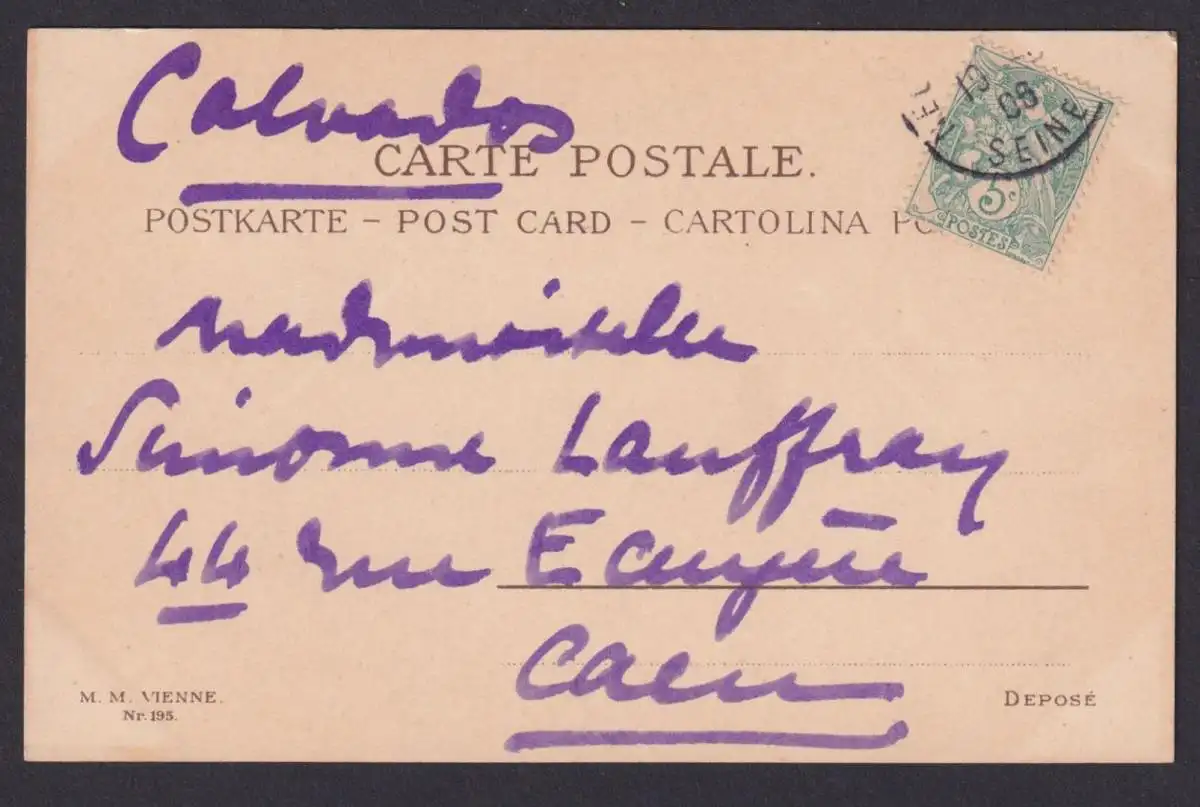 Calvados
CARTE POSTALE.
POSTKARTE – POST CARD – CARTOLINA PO
19
08
SEINE
5c
POSTES
Mademoiselle
Simonne Lauffray
44 rue Ecuyère
Caen
M. M. VIENNE.
Nr. 195.
DEPOSÉ